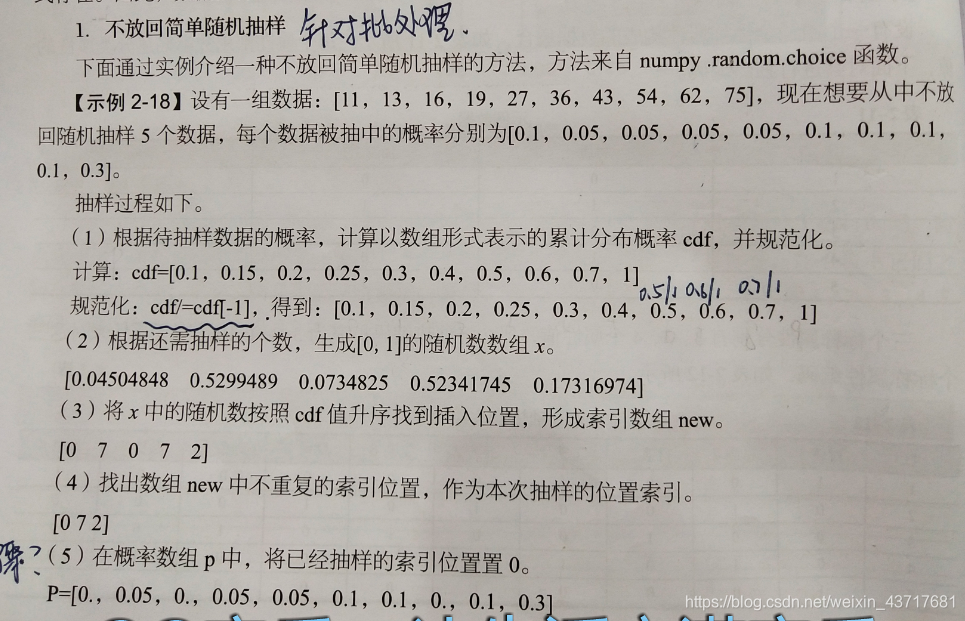 1. 不放回简单随机抽样 针对批处理.
下面通过实例介绍一种不放回简单随机抽样的方法，方法来自 numpy .random.choice 函数。
【示例 2-18】设有一组数据：[11，13，16，19，27，36，43，54，62，75]，现在想要从中不放
回随机抽样 5 个数据，每个数据被抽中的概率分别为[0.1，0.05，0.05，0.05，0.05，0.1，0.1，0.1，
0.1，0.3]。
抽样过程如下。
（1）根据待抽样数据的概率，计算以数组形式表示的累计分布概率 cdf，并规范化。
计算：cdf=[0.1，0.15，0.2，0.25，0.3，0.4，0.5，0.6，0.7，1]
0.5/1 0.6/1 0.7/1
规范化：cdf/=cdf[-1]，得到：[0.1，0.15，0.2，0.25，0.3，0.4，0.5，0.6，0.7，1]
（2）根据还需抽样的个数，生成[0, 1]的随机数数组 x。
[0.04504848 0.5299489 0.0734825 0.52341745 0.17316974]
（3）将 x 中的随机数按照 cdf 值升序找到插入位置，形成索引数组 new。
[0 7 0 7 2]
（4）找出数组 new 中不重复的索引位置，作为本次抽样的位置索引。
[0 7 2]
（5）在概率数组 p 中，将已经抽样的索引位置置 0。
P=[0.，0.05，0.，0.05，0.05，0.1，0.1，0.，0.1，0.3]
https://blog.csdn.net/weixin_43717681